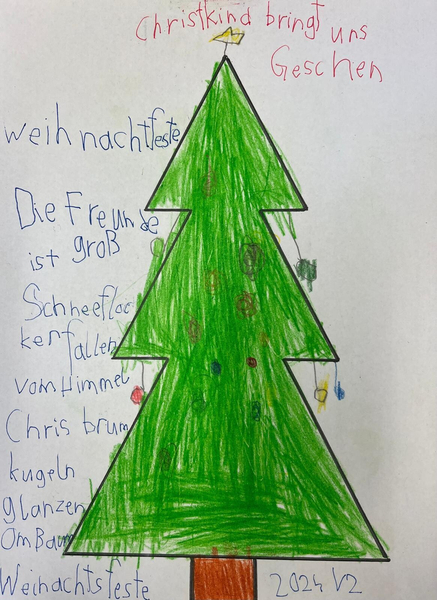 Christkind bringt uns
Geschen
Weihnachtfeste
Die Freunde
ist groß
Schneefloc
kenfallen
vom Himmel
Chris brum
kugeln
glänzen
Om Baum
Weihachtsfeste
2024 V2